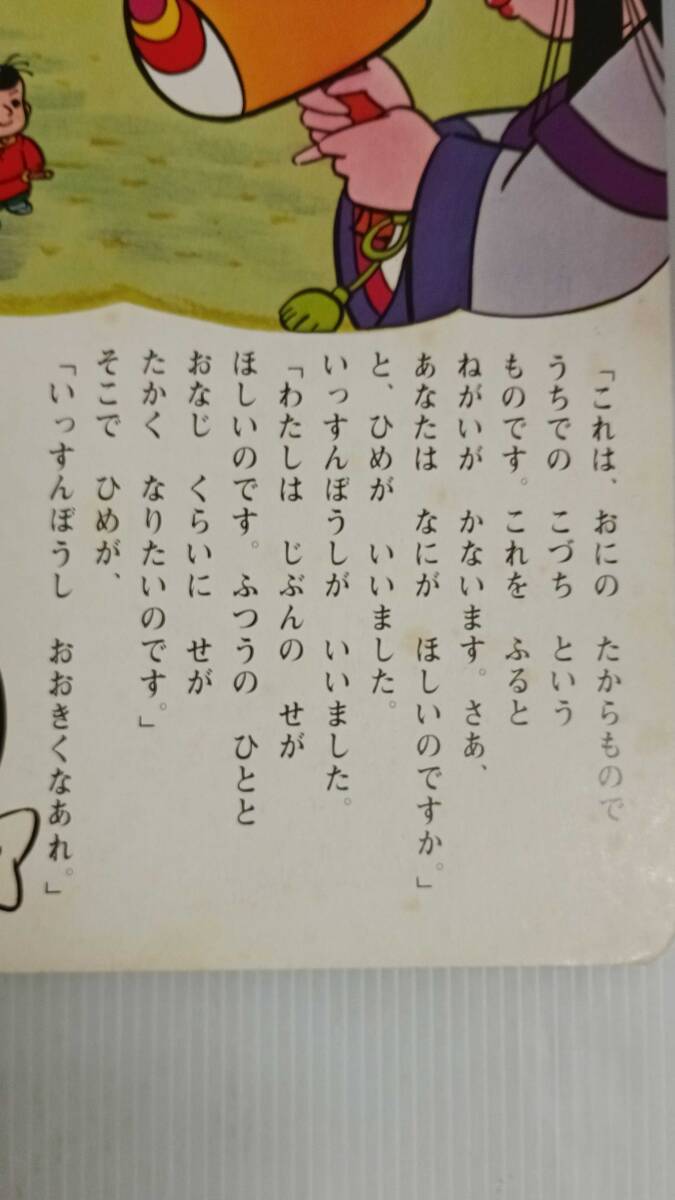 「これは、おにの　たからもので
うちでの　こづち　という
ものです。これを　ふると
ねがいが　かないます。さあ、
あなたは　なにが　ほしいのですか。」
と、ひめが　いいました。
いっすんぼうしが　いいました。
「わたしは　じぶんの　せが
ほしいのです。ふつうの　ひとと
おなじ　くらいに　せが
たかく　なりたいのです。」
そこで　ひめが、
「いっすんぼうし　おおきくなあれ。」